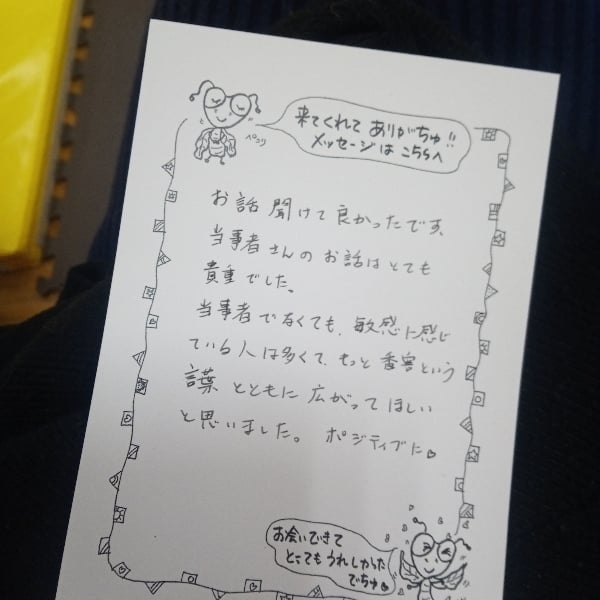 来てくれて ありがちゅ!!
メッセージは こちらへ
ペコリ
お話 聞けて 良かったです、
当事者さんの お話は とても
貴重でした。
当事者でなくても、敏感に感じ
ている人は多くて、もっと 香害という
言葉 とともに 広がって ほしい
と思いました。 ポジティブに♥
お会いできて
とってもうれしかった
でちゅ♥